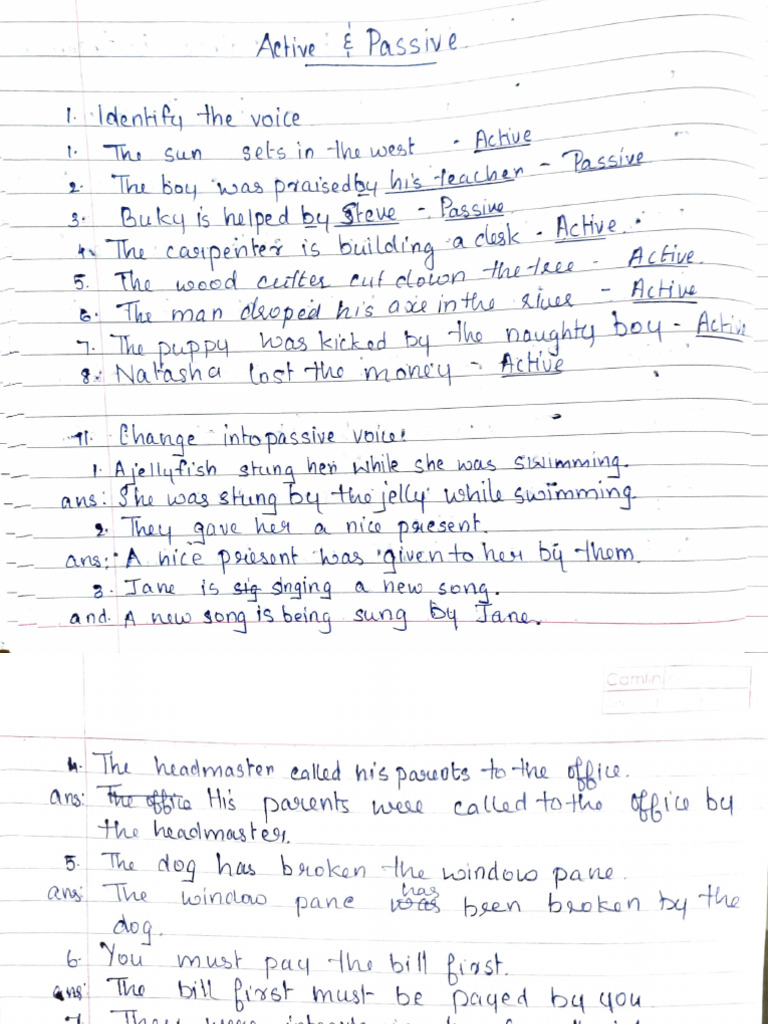 Active & Passive
1. Identify the voice
1. The sun sets in the west - Active
2. The boy was praised by his teacher - Passive
3. Buky is helped by Steve - Passive
4. The carpenter is building a desk - Active.
5. The wood cutter cut down the tree - Active.
6. The man droped his axe in the river - Active
7. The puppy was kicked by the naughty boy - Active
8. Natasha lost the money - Active
11. Change into passive voice:
1. A jellyfish stung her while she was swimming.
ans: She was stung by the jelly while swimming.
2. They gave her a nice present.
ans: A nice present was given to her by them.
3. Jane is sig singing a new song.
and. A new song is being sung by Jane.
Camlin
4. The headmaster called his parents to the office.
ans: The office His parents were called to the office by
the headmaster.
5. The dog has broken the window pane.
ans: The window pane was has been broken by the
dog.
6. You must pay the bill first.
ans: The bill first must be payed by you.